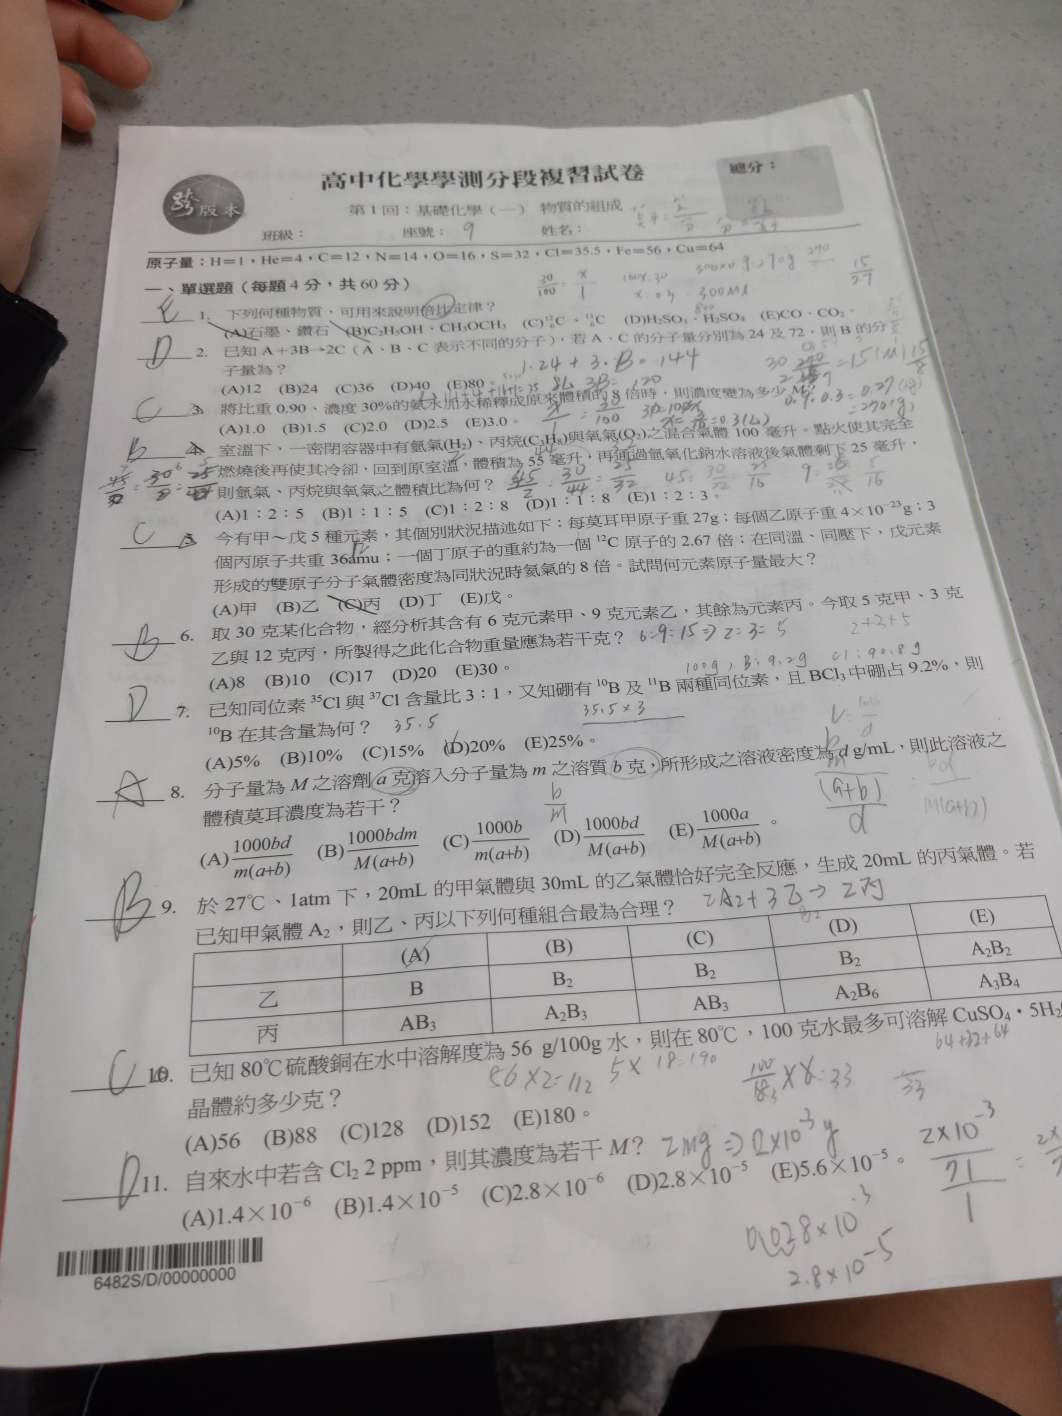 跨版本
高中化學學測分段複習試卷
總分:
第1回:基礎化學(一) 物質的組成
班級: 座號: 9 姓名:
原子量:H=1,He=4,C=12,N=14,O=16,S=32,Cl=35.5,Fe=56,Cu=64
一、單選題(每題4分,共60分)
E 1. 下列何種物質,可用來說明倍比定律?
(A)石墨、鑽石 (B)C₂H₅OH、CH₃OCH₃ (D)H₂SO₃、H₂SO₄ (E)CO、CO₂。
D 2. 已知A+3B→2C(A、B、C表示不同的分子),若A、C的分子量分別為24及72,則B的分
子量為?
1.24+3.B=144
(A)12 (B)24 (C)36 (D)40 (E)80。
C 3. 將比重0.90、濃度30%的氨水加水稀釋成原來體積的8倍時,則濃度變為多少M?
(A)1.0 (B)1.5 (C)2.0 (D)2.5 (E)3.0。
B 4. 室溫下,一密閉容器中有氫氣(H₂)、丙烷(C₃H₈)與氧氣(O₂)之混合氣體100毫升。點火使其完全
燃燒後再使其冷卻,回到原室溫,體積為55毫升,再通過氫氧化鈉水溶液後氣體剩下25毫升,
則氫氣、丙烷與氧氣之體積比為何?
(A)1:2:5 (B)1:1:5 (C)1:2:8 (D)1:1:8 (E)1:2:3。
C 5. 今有甲~戊5種元素,其個別狀況描述如下:每莫耳甲原子重27g;每個乙原子重4×10⁻²³g;3
個丙原子共重36amu;一個丁原子的重約為一個¹²C原子的2.67倍;在同溫、同壓下,戊元素
形成的雙原子分子氣體密度為同狀況時氦氣的8倍。試問何元素原子量最大?
(A)甲 (B)乙 (C)丙 (D)丁 (E)戊。
B 6. 取30克某化合物,經分析其含有6克元素甲、9克元素乙,其餘為元素丙。今取5克甲、3克
乙與12克丙,所製得之此化合物重量應為若干克? 6:9:15⇒2:3:5
2+3+5
(A)8 (B)10 (C)17 (D)20 (E)30。
100g, B:9.2g Cl:90.8g
D 7. 已知同位素³⁵Cl與³⁷Cl含量比3:1,又知硼有¹⁰B及¹¹B兩種同位素,且BCl₃中硼占9.2%,則
¹⁰B在其含量為何? 35.5 35.5×3
(A)5% (B)10% (C)15% (D)20% (E)25%。
A 8. 分子量為M之溶劑a克溶入分子量為m之溶質b克,所形成之溶液密度為d g/mL,則此溶液之
體積莫耳濃度為若干?
(A)1000bd/m(a+b) (B)1000bdm/M(a+b) (C)1000b/m(a+b) (D)1000bd/M(a+b) (E)1000a/M(a+b)。
B 9. 於27℃、1atm下,20mL的甲氣體與30mL的乙氣體恰好完全反應,生成20mL的丙氣體。若
已知甲氣體A₂,則乙、丙以下列何種組合最為合理? 2A2+3乙→2丙
(A) (B) (C) (D) (E)
乙 B B₂ B₂ B₂ A₂B₂
丙 AB₃ A₂B₃ AB₃ A₂B₆ A₃B₄
C 10. 已知80℃硫酸銅在水中溶解度為56 g/100g水,則在80℃,100克水最多可溶解CuSO₄・5H₂
晶體約多少克? 56×2=112 64+32+64
(A)56 (B)88 (C)128 (D)152 (E)180。
D 11. 自來水中若含Cl₂ 2 ppm,則其濃度為若干M? 2mg⇒2×10⁻³g
(A)1.4×10⁻⁶ (B)1.4×10⁻⁵ (C)2.8×10⁻⁶ (D)2.8×10⁻⁵ (E)5.6×10⁻⁵。
2×10⁻³/71
0.028×10⁻³
2.8×10⁻⁵
6482S/D/00000000